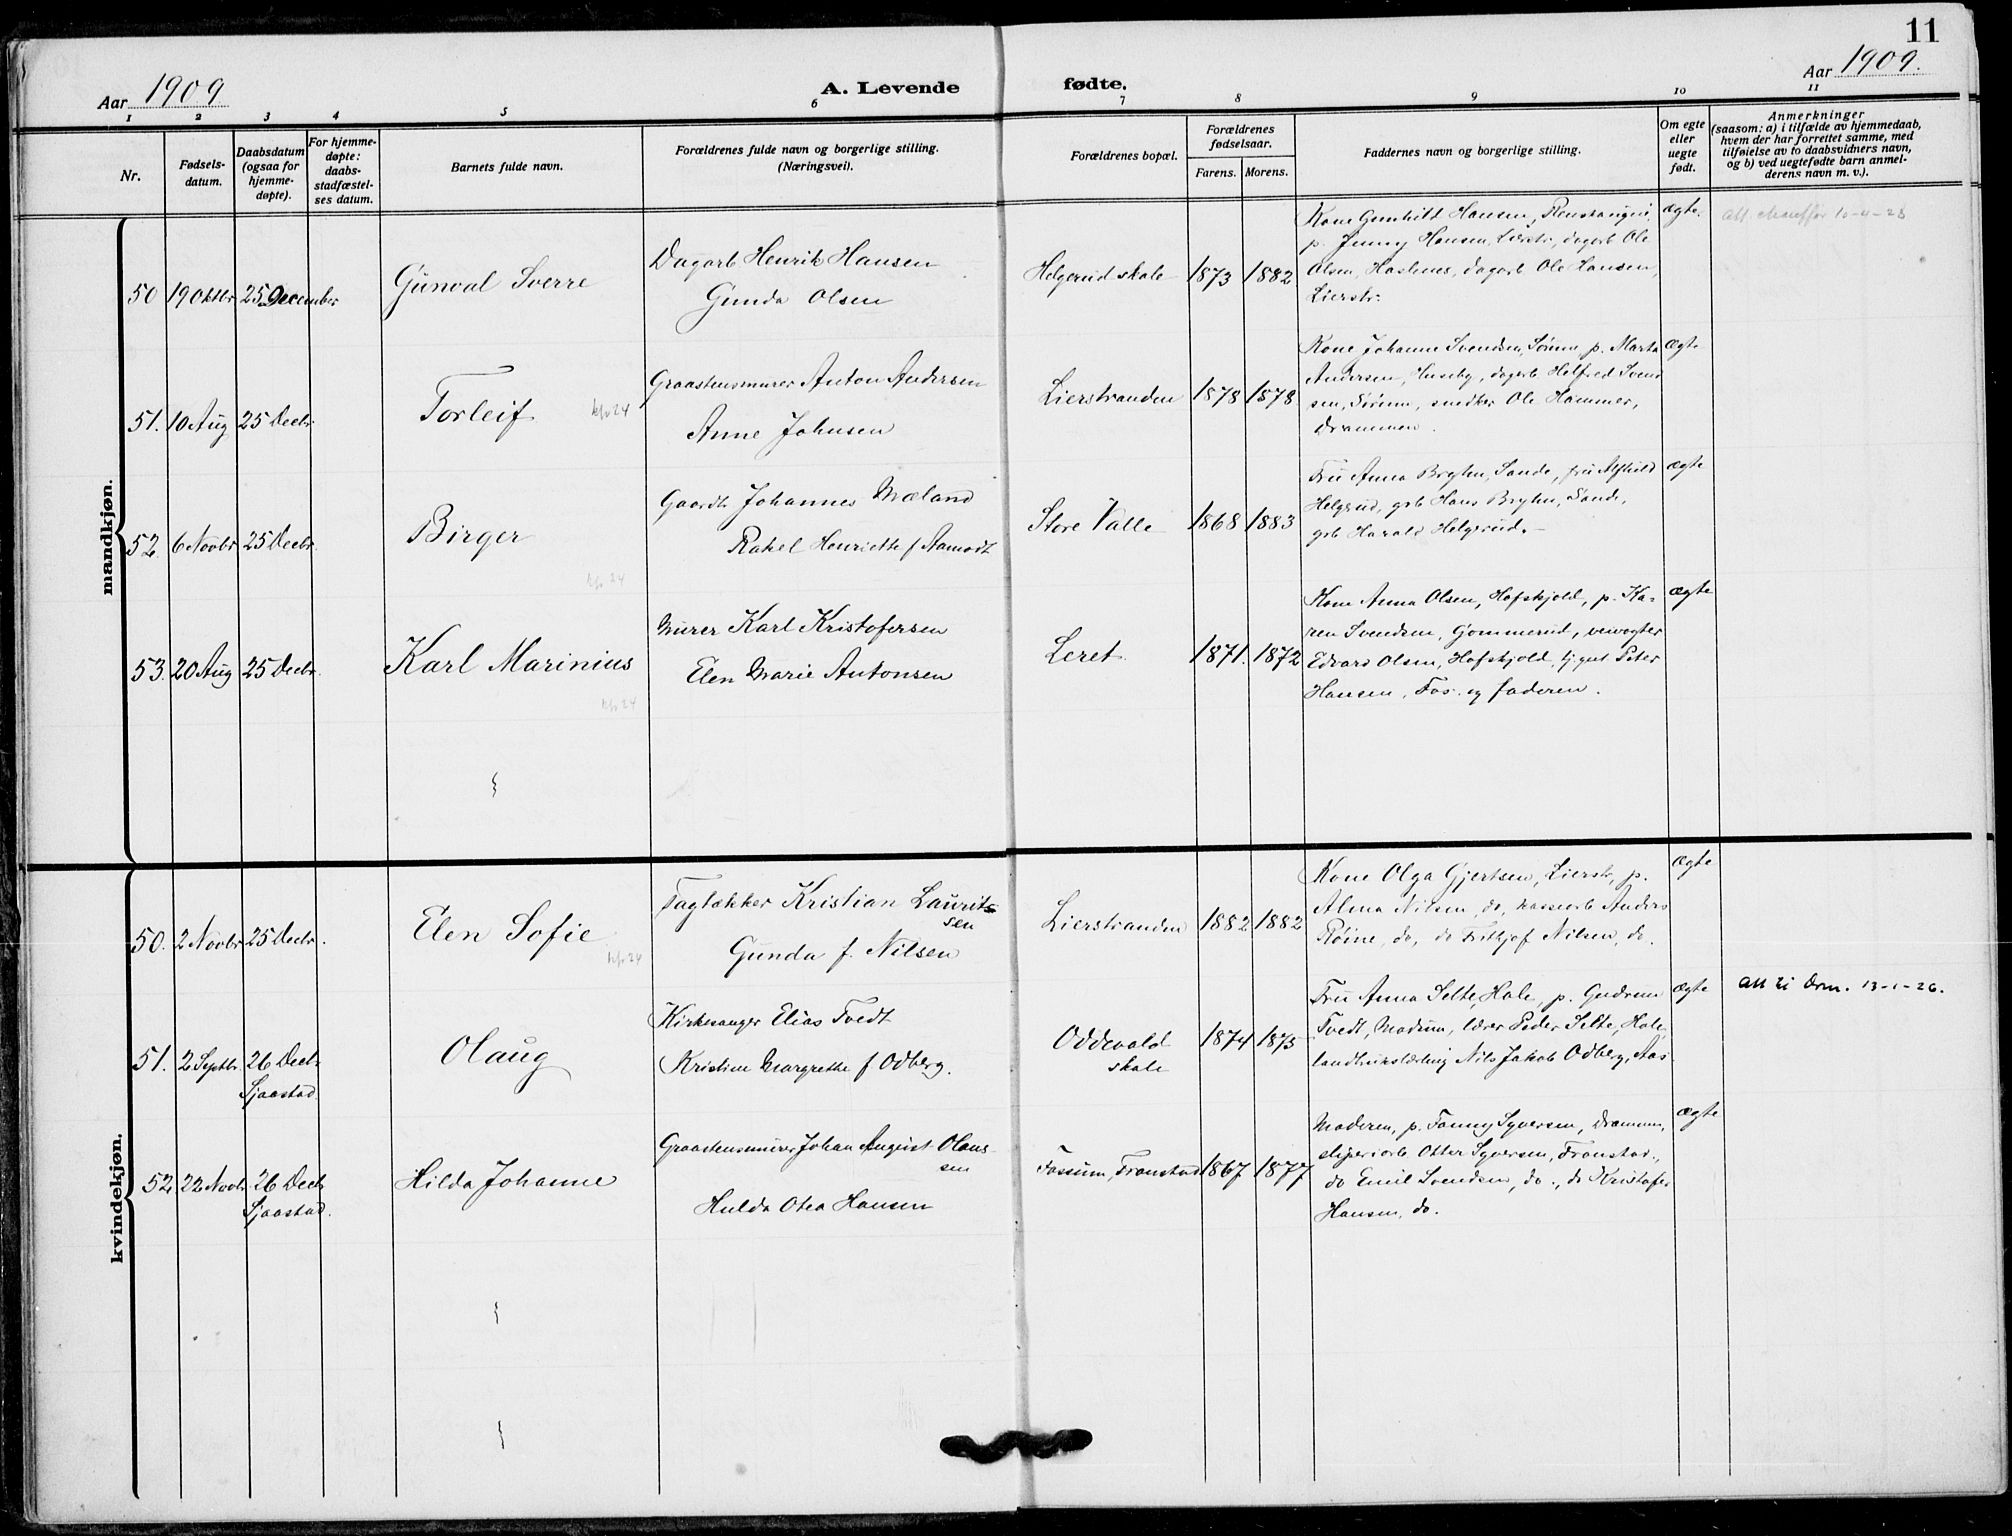 11
Aar 1909
A. Levende fødte.
Aar 1909.
1 2 3 4 5 6 7 8 9 10 11
Nr.
Fødsels-
datum.
Daabsdatum
(ogsaa for
hjemme-
døpte).
For hjemme-
døpte:
daabs-
stadfæstel-
ses datum.
Barnets fulde navn.
Forældrenes fulde navn og borgerlige stilling.
(Næringsvei).
Forældrenes bopæl.
Forældrenes
fødselsaar.
Farens. Morens.
Faddernes navn og borgerlige stilling.
Om egte
eller
uegte
født.
Anmerkninger
(saasom: a) i tilfælde av hjemmedaab,
hvem der har forrettet samme, med
tilføielse av to daabsvidners navn,
og b) ved uegtefødte barn anmel-
derens navn m. v.).
mandkjøn.
50 19 Oktbr 25 December
Gunval Sverre
Dagarb Henrik Hansen
Gunda Olsen
Helgerud skole 1873 1882
Kone Gunhild Hansen,
p. Jenny Hansen, Lierstr, dagarb Ole
Olsen, Hasknes, dagarb Ole Hansen,
Lierstr.
Ægte.
att. chauffør 10-4-28
51. 10 Aug 25 Decbr
Torleif
kfr 24
Graastensmurer Anton Andersen
Anne Johnsen
Lierstranden 1878 1878
Kone Johanne Svendsen, Sørum, p. Marta
Andersen, Huseby, dagarb Helfred Svend
sen, Sørum, snedker Ole Hammer,
Drammen.
Ægte
52. 6 Novbr 25 Decbr.
Birger
kfr 24
Gaardbr Johannes Mæland
Rakel Henriette f Aamodt
Store Valle 1868 1883
Fru Anna Bryhn, Sande, fru Alfhild
Helgrud, grb Hans Bryhn, Sande,
grb Harald Helgerud.
Ægte
53. 20 Aug 25 Decbr.
Karl Marinius
kfr 24
Murer Karl Kristofersen
Elen Marie Antonsen
Leret 1871. 1872
Kone Anna Olsen, Hofskjold, p. Ka-
ren Svendsen, Gommerud, veivogter
Edvard Olsen, Hofskjold, tj.gut Peter
Hansen, Fos. og faderen.
Ægte
kvindekjøn.
50. 2 Novbr 25 Decbr.
Elen Sofie
kfr 24
Tagtækker Kristian Laurit-
sen
Gunda f. Nilsen
Lierstranden 1882 1882
Kone Olga Gjertsen, Lierstr, p.
Alma Nilsen, do, kassearb Anders
Røine, do, do Fritjof Nilsen, do.
Ægte
51. 2 Septbr. 26 Decbr
Sjaastad.
Olaug
Kirkesanger Elias Tvedt
Kristine Margrethe f Odberg.
Oddevald
skole
1874 1875
Fru Anna Selte, Hole, p. Gudrun
Tvedt, Modum, lærer Peder Selte, Hole,
landbrukslærling Nils Jakob Odberg, Aas
Ægte
Att til Drm. 13-1-26.
52. 22 Novbr. 26 Decbr
Sjaastad.
Hilda Johanne
Graastensmurer Johan August Olaus-
sen
Hulda Otea Hansen
Fossum, Transtad 1867 1877
Moderen, p. Fanny Syversen, Drammen,
sliperiarb Otter Syversen, Transtad,
do Emil Svendsen, do., do Kristofer
Hansen, do.
Ægte